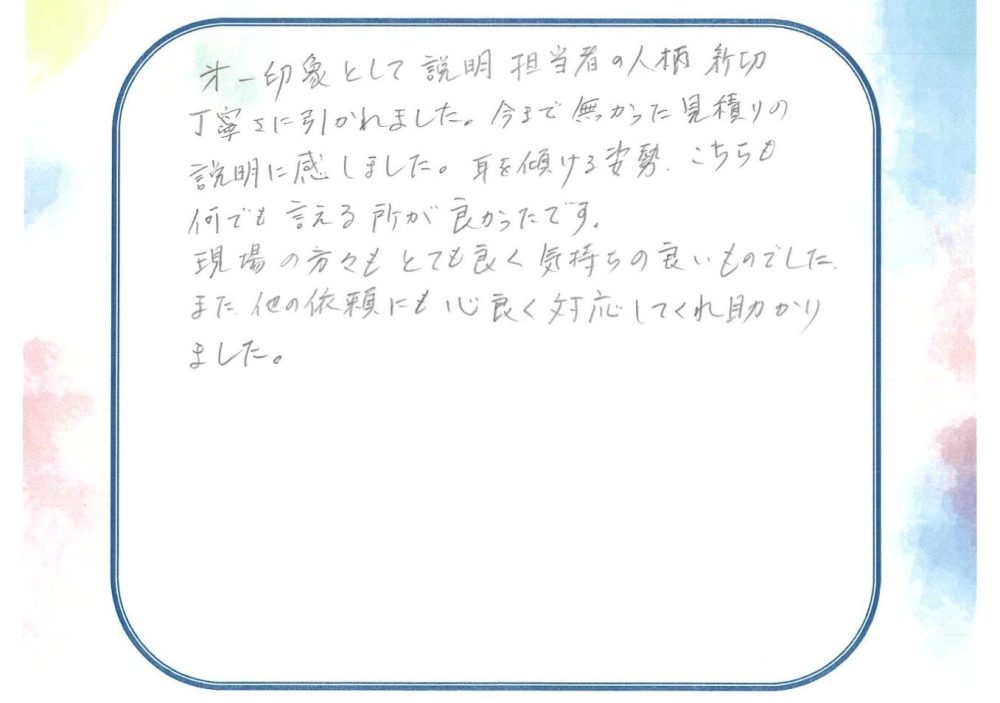 才一印象として 説明 担当者の人柄 新切
丁寧さに引かれました。今まで無かった見積りの
説明に感しました。耳を傾ける姿勢、こちらも
何でも言える所が良かったです。
現場の方々もとても良く気持ちの良いものでした。
また他の依頼にも心良く対応してくれ助かり
ました。